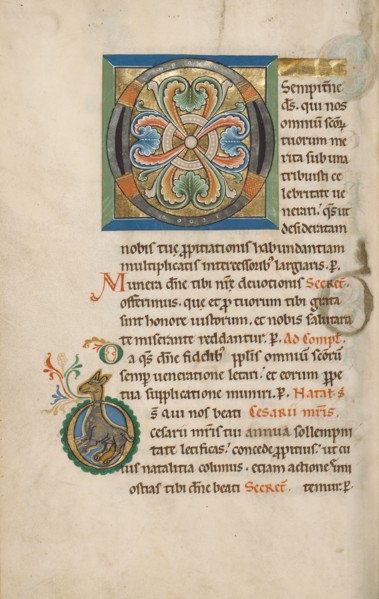 Sempit̄ne
d̄s. qui nos
omniū sc̄or̄
tuorum me
rita sub una
tribuisti ce
lebritate ue
nerari. q̄s ut
desideratam
nobis tuę p̱pitiationis habundantiam
multiplicatis intercessorib; largiaris. P̄.
Munera dn̄e tibi nr̄ę deuotionis Secret̄.
offerimus. que et p̱ tuorum tibi grata
sint honore iustorum. et nobis salutaria
te miserante reddantur. P̄. Ad Compl̄.
Da q̄s dn̄e fidelib; ppl̄is omniū sc̄orū
semp̱ ueneratione letari. et eorum p̱pe
tua supplicatione muniri. P̄. Natal̄. s̄.
D̄s qui nos beati Cesarii mr̄is.
cesarii mr̄is tui annua sollempni
tate letificas. concede p̱pitius. ut cu
ius natalitia colimus. etiam actiones imi
Hostias tibi dn̄e beati Secret̄. temur. P̄.